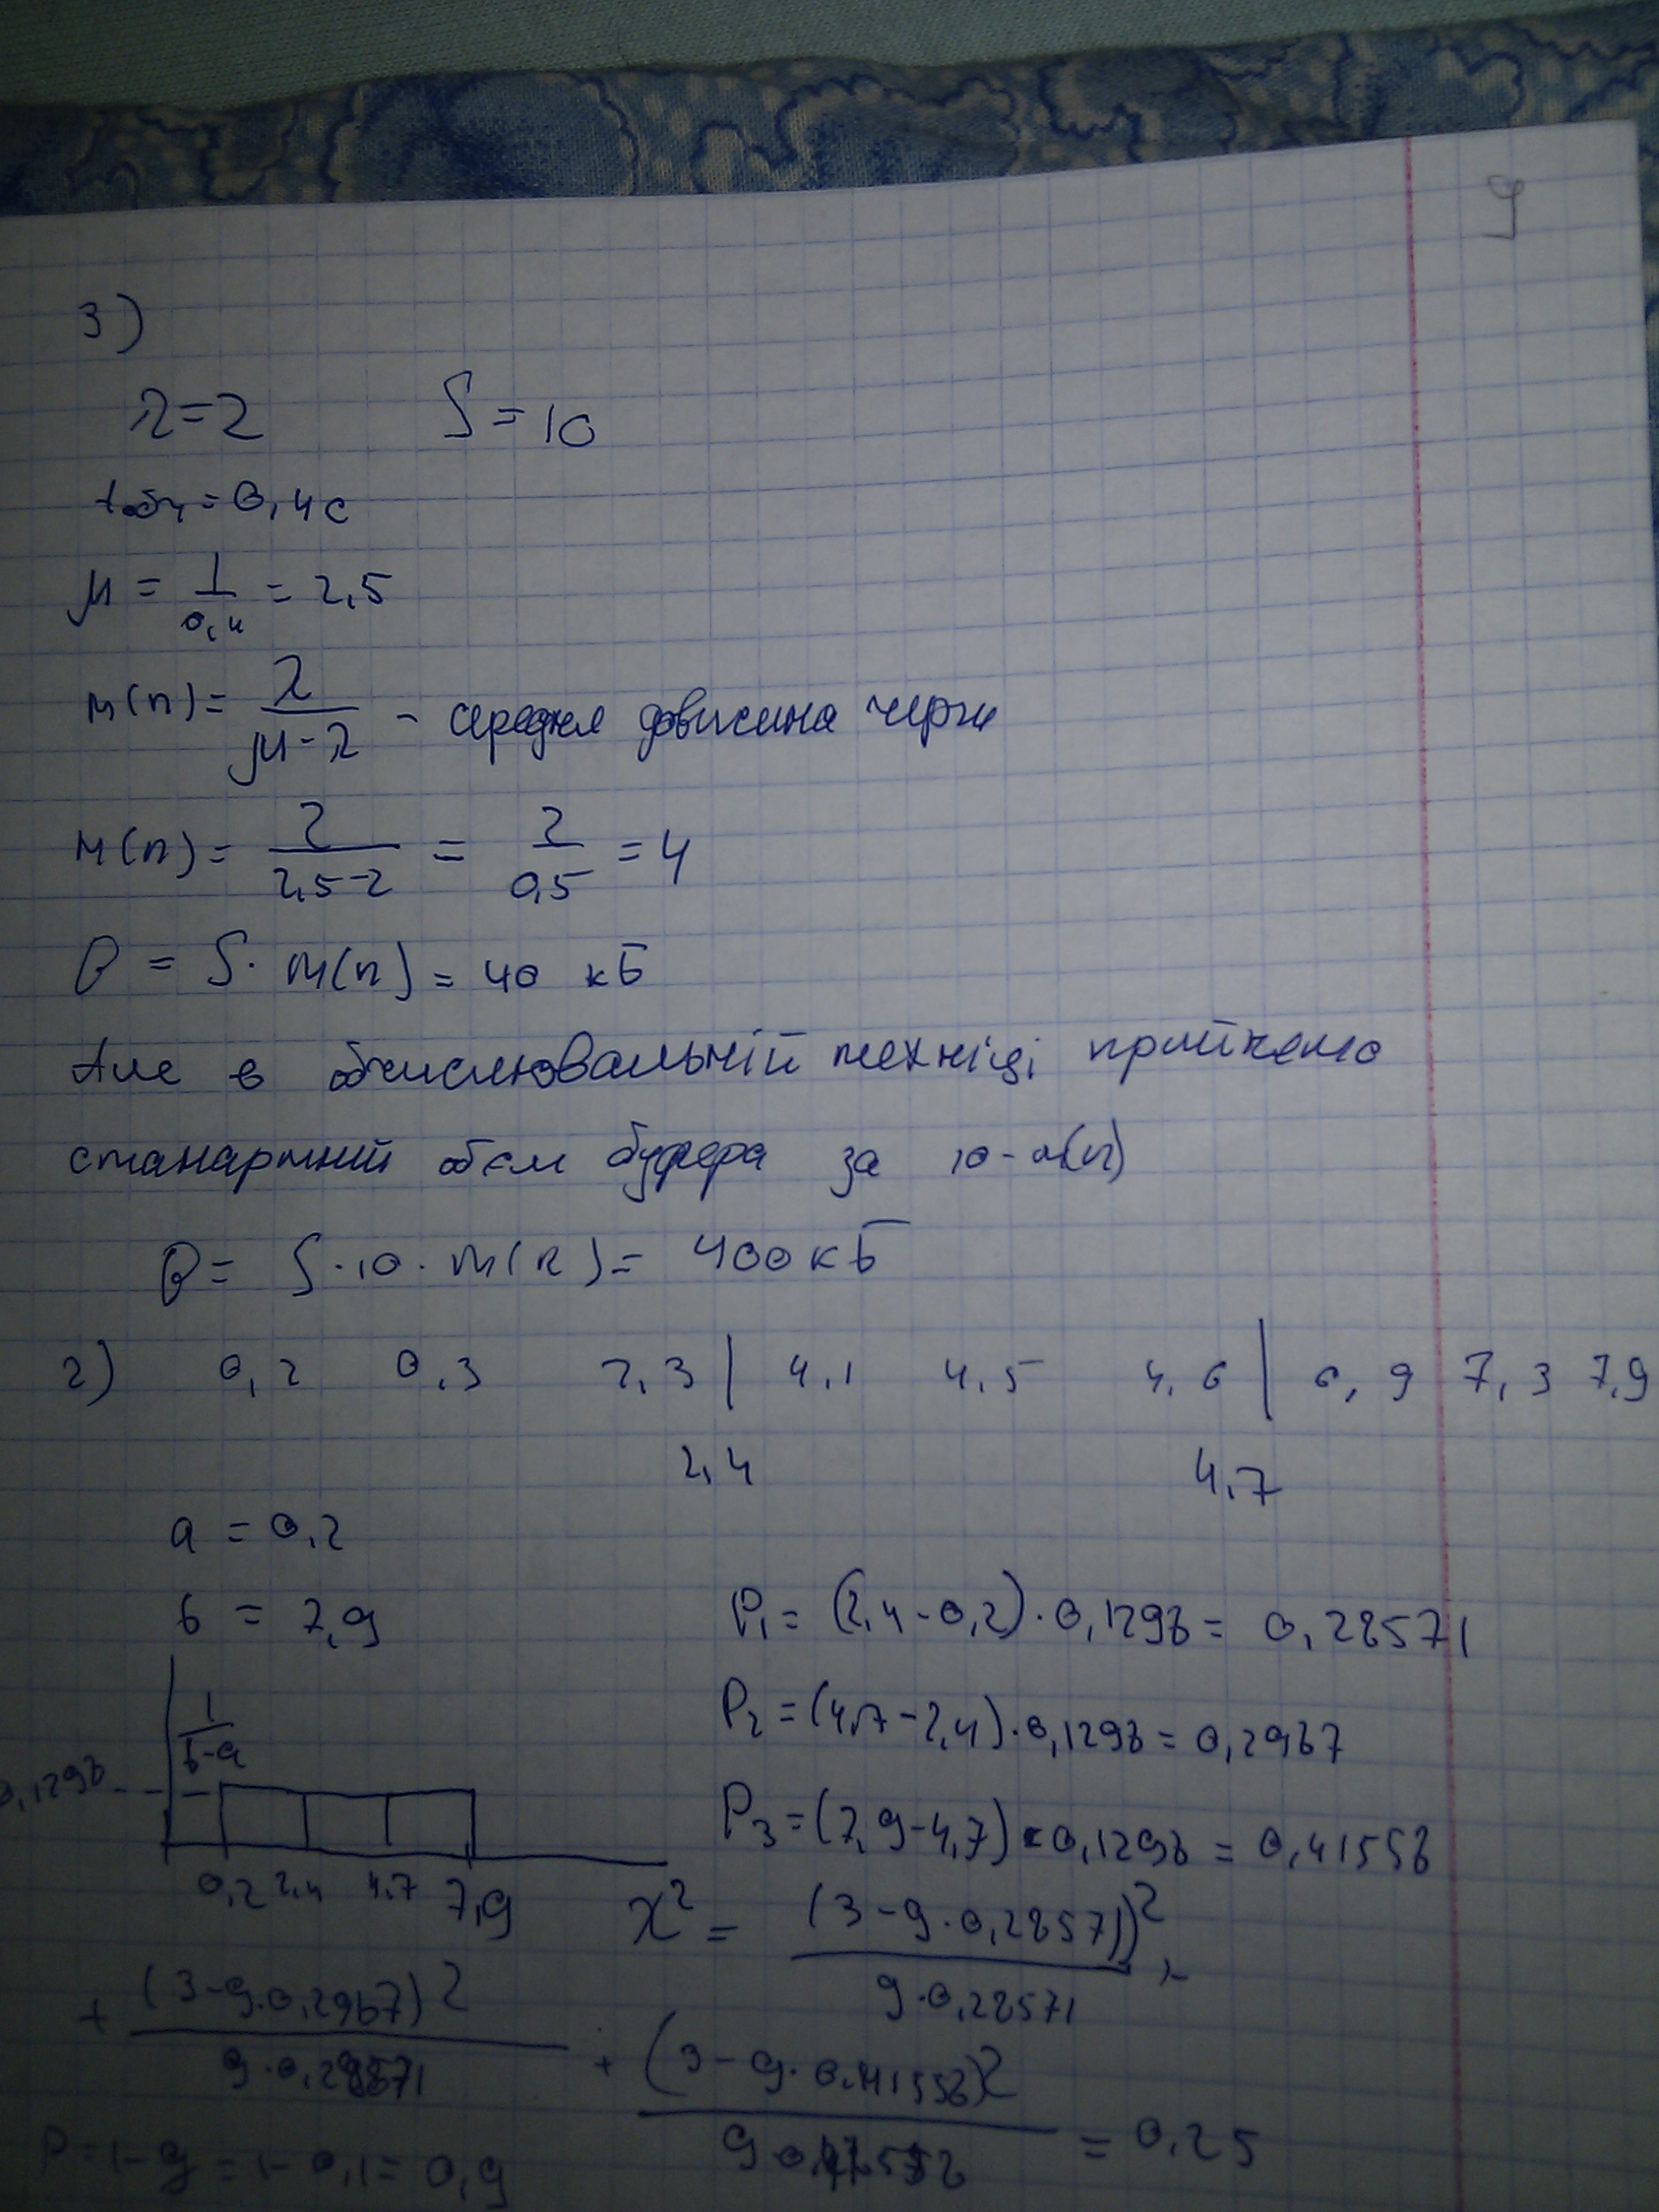 9
3)
λ=2 S=10
tобч=0,4с
μ = 1/0,4 = 2,5
м(n)= λ/(μ-λ) - середня довжина черги
м(n)= 2/(2,5-2) = 2/0,5 =4
Q = S· м(n) = 40 кБ
Але в обчислювальній техніці прийнято
станартний обєм буфера за 10-м(n)
Q= S·10·м(n)= 400кБ
2) 0,2 0,3 2,3 | 4,1 4,5 4,6 | 6,9 7,3 7,9
2,4 4,7
a = 0,2
b = 7,9
P1= (2,4-0,2)·0,1298= 0,28571
1/(b-a)
P2=(4,7-2,4)·0,1298=0,2987
0,1298
P3=(7,9-4,7)·0,1298=0,41558
0,2 2,4 4,7 7,9
χ²= (3-9·0,28571)²/(9·0,28571) +
+ (3-9·0,2987)²/ + (3-9·0,41558)²/ = 0,25
P=1-g=1-0,1=0,9